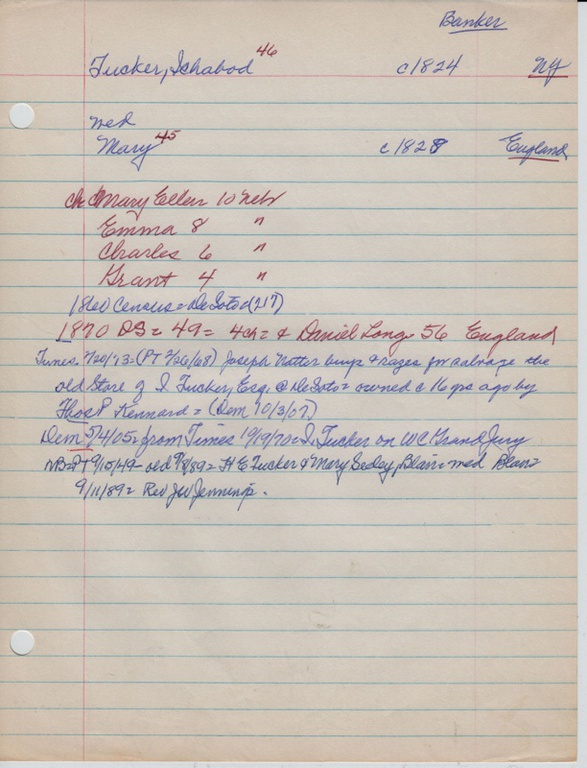 Banker
Tucker, Ichabod 46 c1824 NY
med
Mary 45 c1828 England
ch Mary Ellen 10 Nebr
Emma 8 "
Charles 6 "
Grant 4 "
1860 Census = DeSoto (217)
1870 DS = 49 = 4ch = & Daniel Long = 56 England
Times 7/20/73 = (PT 2/26/68) Joseph Natter buys & razes for salvage the
old Store of I. Tucker, Esq. @ DeSoto = owned c 16 yrs ago by
Thos P Kennard = (Dem 10/3/07)
Dem 5/4/05 = from Times 19/70 = I. Tucker on WC Grand Jury
9/15/49 = old = H E Tucker & Mary Seeley, Blair = med Blair =
9/11/89 = Rev JW Jennings.